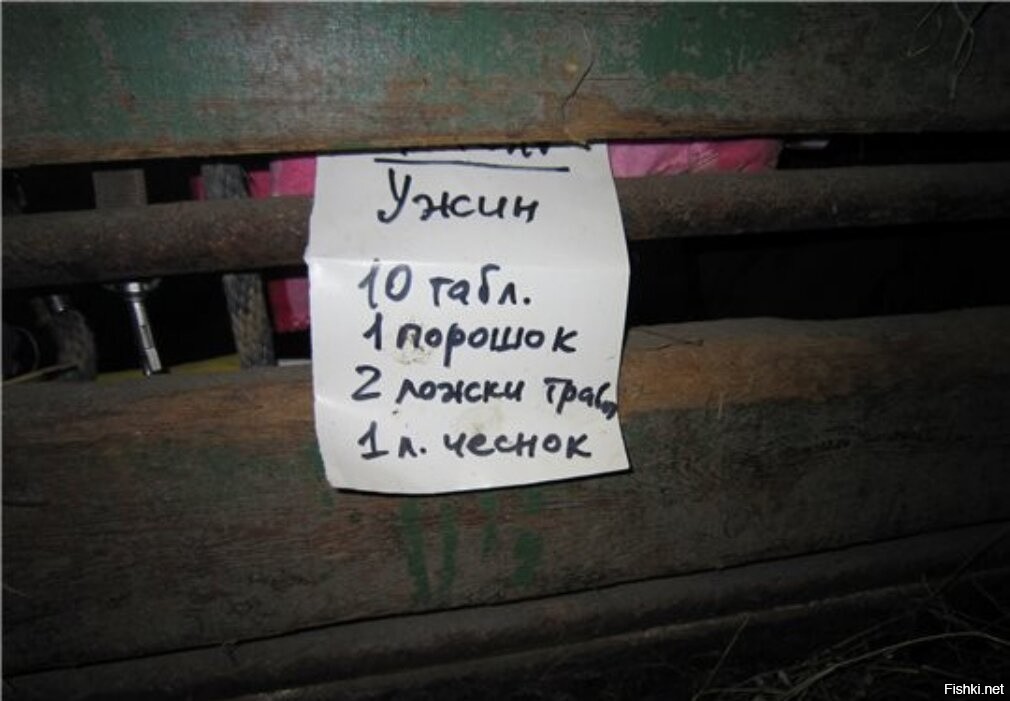 Ужин
10 табл.
1 порошок
2 ложки травы
1 л. чеснок
Fishki.net